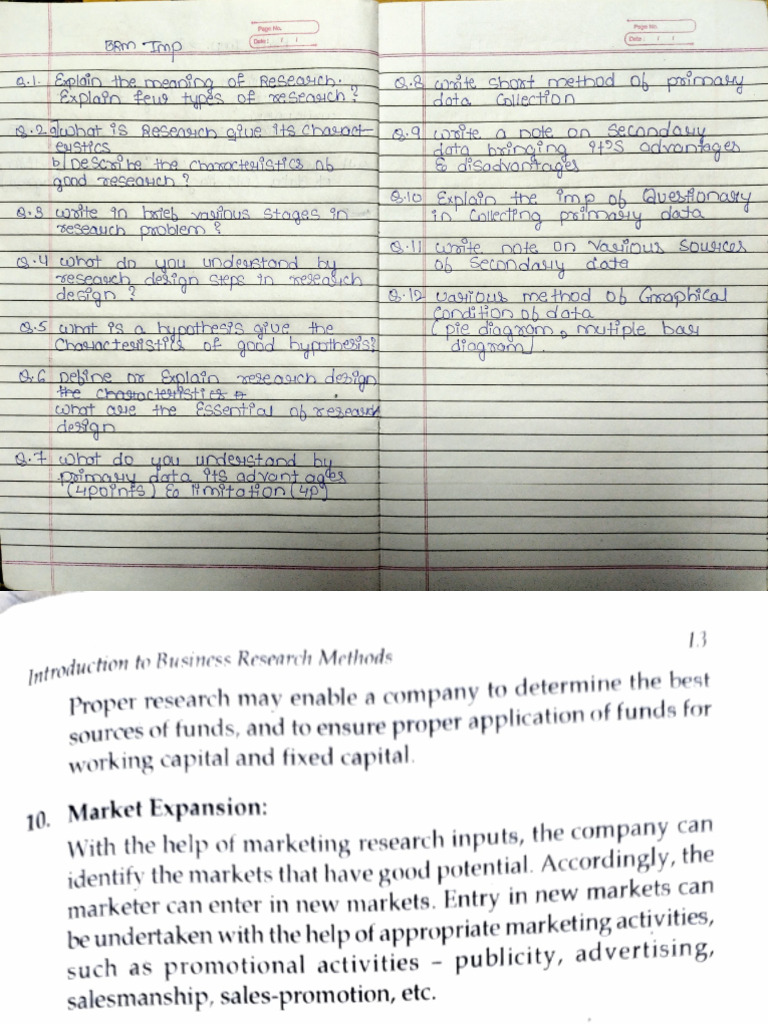 BRM Imp
Page No.
Date : / /
Q.1. Explain the meaning of Research.
Explain few types of research ?
Q.2 a) What is Research give its charact-
eristics
b) Describe the characteristics of
good research ?
Q.3 write in brief various stages in
research problem ?
Q.4 what do you understand by
research design steps in research
design ?
Q.5 what is a hypothesis give the
characteristics of good hypothesis?
Q.6 Define or Explain research design
the characteristics
what are the Essential of research
design
Q.7 what do you understand by
primary data its advantages
(4points) & limitation (4P)
Page No.
Date : / /
Q.8 write short method of primary
data collection
Q.9 write a note on secondary
data bringing it's advantages
& disadvantages
Q.10 Explain the imp of Questionary
in collecting primary data
Q.11 write note on various sources
of secondary data
Q.12 various method of Graphical
Condition of data
(pie diagram, mutiple bar
diagram).
Introduction to Business Research Methods
13
Proper research may enable a company to determine the best
sources of funds, and to ensure proper application of funds for
working capital and fixed capital.
10. Market Expansion:
With the help of marketing research inputs, the company can
identify the markets that have good potential. Accordingly, the
marketer can enter in new markets. Entry in new markets can
be undertaken with the help of appropriate marketing activities,
such as promotional activities – publicity, advertising,
salesmanship, sales-promotion, etc.